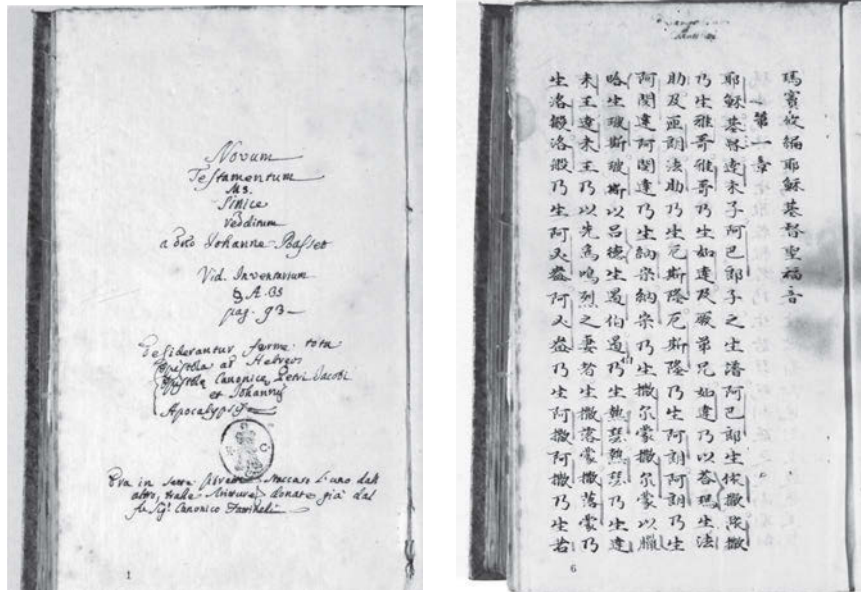 Novum
Testamentum
Ms.
Sinice
redditum
a Dno Johanne Basset
Vid. Inventarium
A. Bs
pag. 93
Desiderantur ferme tota
Epistola ad Hebreos
Epistolæ Canonicæ Petri Jacobi
et Johannis
Apocalypsis
Era in sette staccato l'uno dall
altro, donato già dal
fu Sigr Canonico Fattinelli
1
瑪竇攸編耶穌基督聖福音
第一章
耶穌基督達未子阿巴郎子之生譜阿巴郎生依撒依撒
乃生雅哥雅哥乃生如達及厥弟兄如達乃以荅瑪生法
助及匝朗法助乃生厄斯隆厄斯隆乃生阿朗阿朗乃生
阿閔達阿閔達乃生納宗納宗乃生撒尔蒙撒尔蒙以臘
哈生玻斯玻斯以呂德生遏伯遏伯乃生熱瑟熱瑟乃生達
未王達未王乃以先為鳴烈之妻者生撒落蒙撒落蒙乃
生洛鍛洛鍛乃生阿叉盎阿叉盎乃生阿撒阿撒乃生若
6